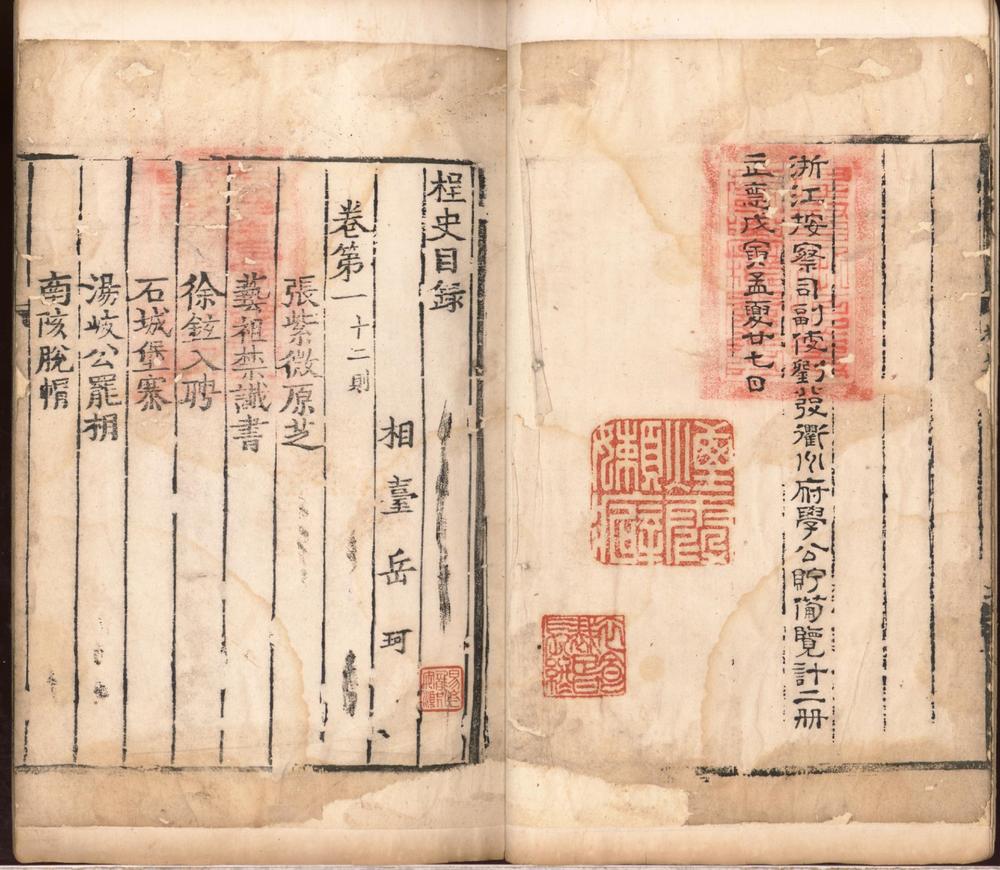 浙江按察司副使劉發衢州府學公貯備覽計二册
正惪戊寅孟夏廿七日
桯史目録
相臺岳珂
卷第一十二則
張紫微原芝
藝祖禁讖書
徐鉉入聘
石城堡寨
湯岐公罷相
南陔脫帽